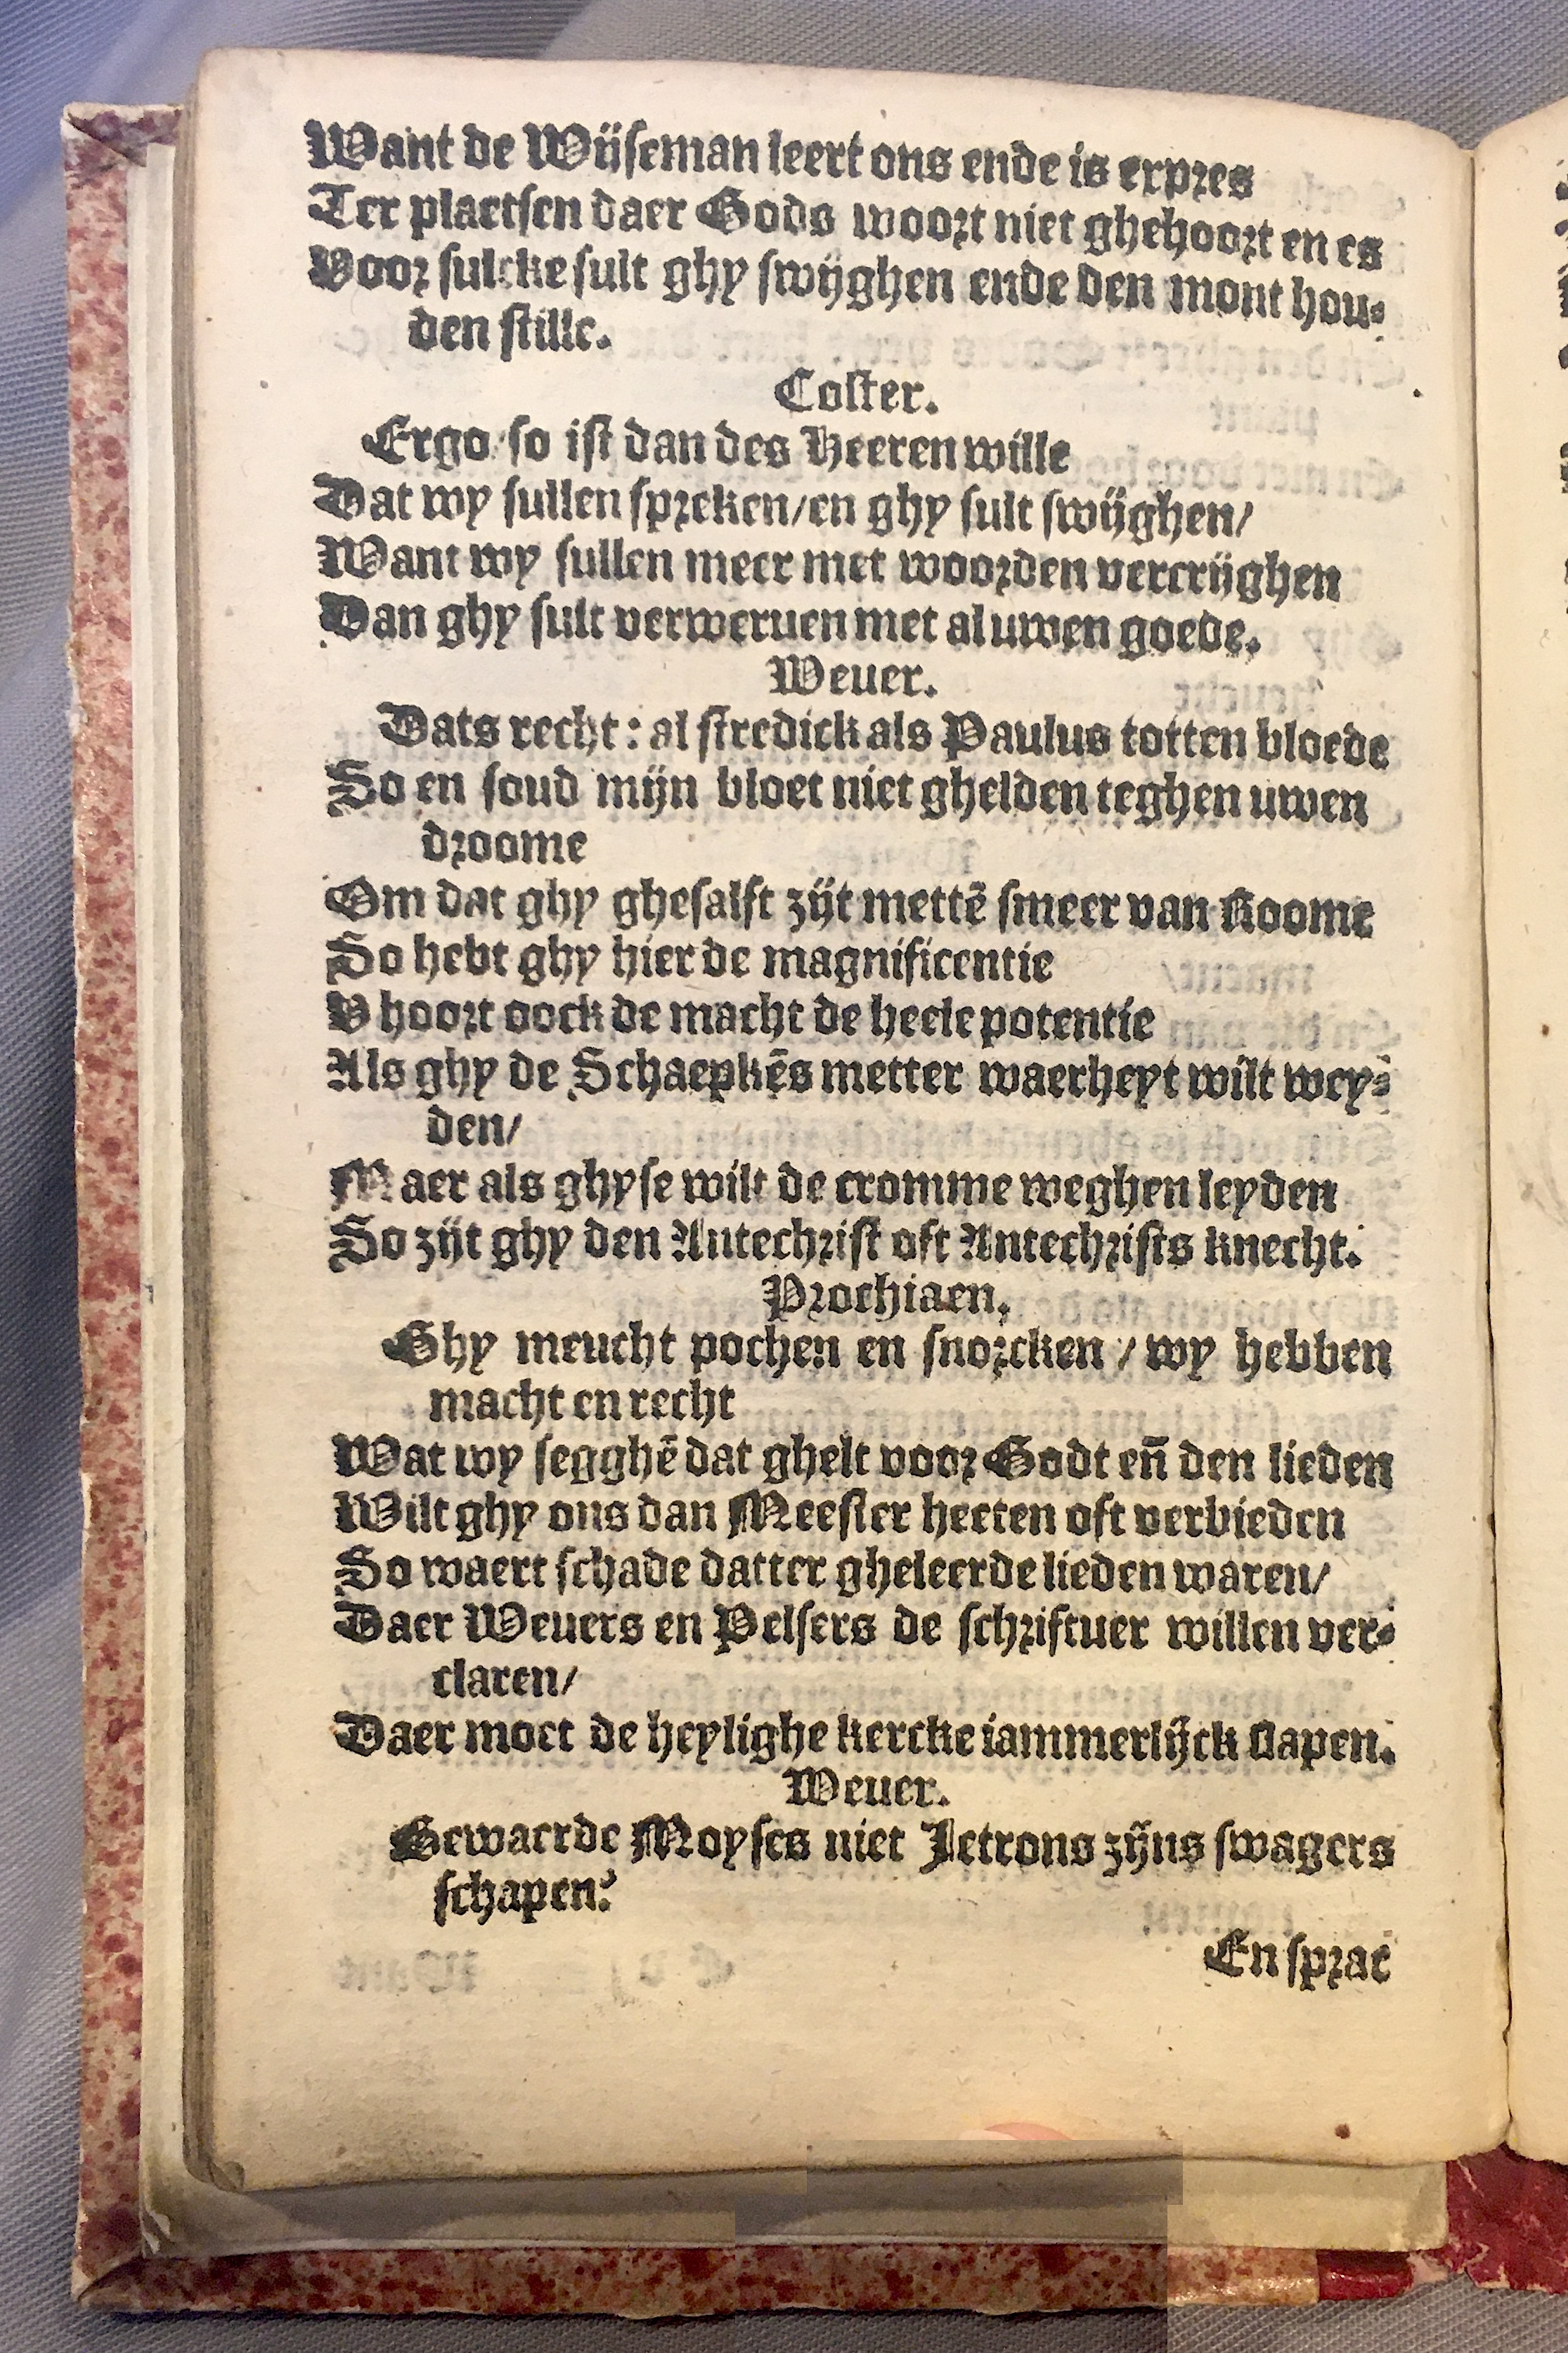 Want de Wijseman leert ons ende is expres
Ter plaetsen daer Gods woort niet ghehoort en es
Voor sulcke sult ghy swijghen ende den mont hou-
den stille.
Coster.
Ergo so ist dan des Heeren wille
Dat wy sullen spreken/en ghy sult swijghen/
Want wy sullen meer met woorden vercrijghen
Dan ghy sult verweruen met al uwen goede.
Weuer.
Dats recht: al stredick als Paulus totten bloede
So en soud mijn bloet niet ghelden teghen uwen
droome
Om dat ghy ghesalft zijt mettē smeer van Roome
So hebt ghy hier de magnificentie
V hoort oock de macht de heele potentie
Als ghy de Schaepkēs metter waerheyt wilt wey-
den/
Maer als ghyse wilt de cromme weghen leyden
So zijt ghy den Antechrist oft Antechrists knecht.
Prochiaen.
Ghy meucht pochen en snorcken / wy hebben
macht en recht
Wat wy segghē dat ghelt voor Godt en̄ den lieden
Wilt ghy ons dan Meester heeten oft verbieden
So waert schade datter gheleerde lieden waren/
Daer Weuers en Pelsers de schriftuer willen ver-
claren/
Daer moet de heylighe kercke iammerlijck slapen.
Weuer.
Gewaerde Moyses niet Jetrons zijns swagers
schapen?
En sprac